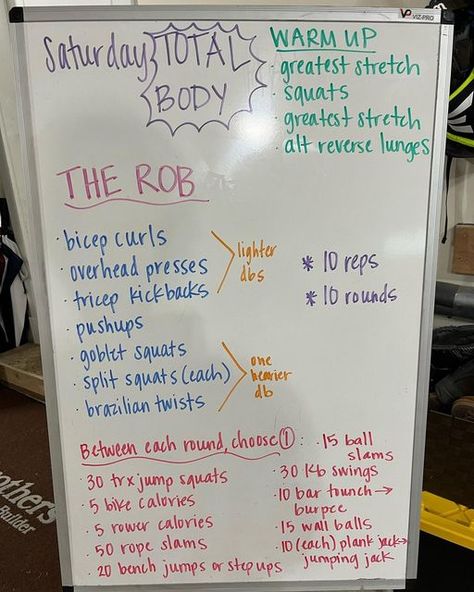 VIZ-PRO
Saturday TOTAL
BODY
WARM UP
· greatest stretch
· squats
· greatest stretch
· alt reverse lunges
THE ROB
· bicep curls
· overhead presses
· tricep kickbacks
lighter
dbs
· pushups
· goblet squats
· split squats (each)
· brazilian twists
one
heavier
db
* 10 reps
* 10 rounds
Between each round, choose 1 :
· 30 trx jump squats
· 5 bike calories
· 5 rower calories
· 50 rope slams
· 20 bench jumps or step ups
· 15 ball
slams
· 30 kb swings
· 10 bar touch →
burpee
· 15 wall balls
· 10 (each) plank jack →
jumping jack
others
Builder